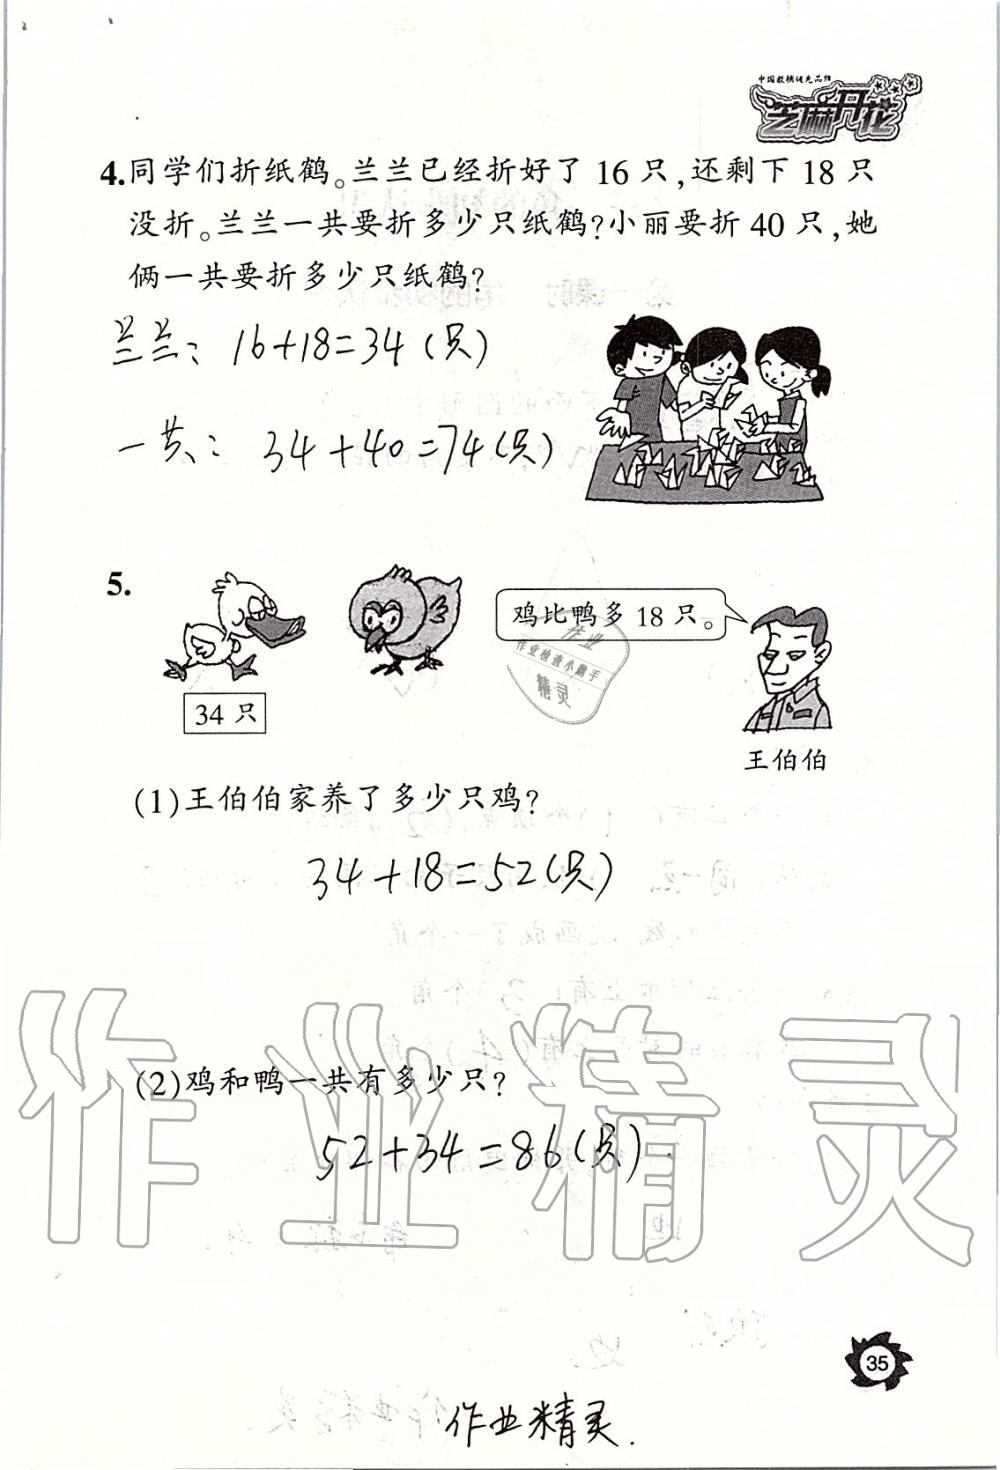 中国教辅领先品牌
芝麻开花
4.同学们折纸鹤。兰兰已经折好了 16 只,还剩下 18 只
没折。兰兰一共要折多少只纸鹤?小丽要折 40 只,她
俩一共要折多少只纸鹤?
兰兰: 16+18=34(只)
一共: 34+40=74(只)
5.
鸡比鸭多 18 只。
34 只
王伯伯
作业
作业检查小助手
精灵
(1)王伯伯家养了多少只鸡?
34+18=52(只)
(2)鸡和鸭一共有多少只?
52+34=86(只)
作业精灵
35
作业精灵.